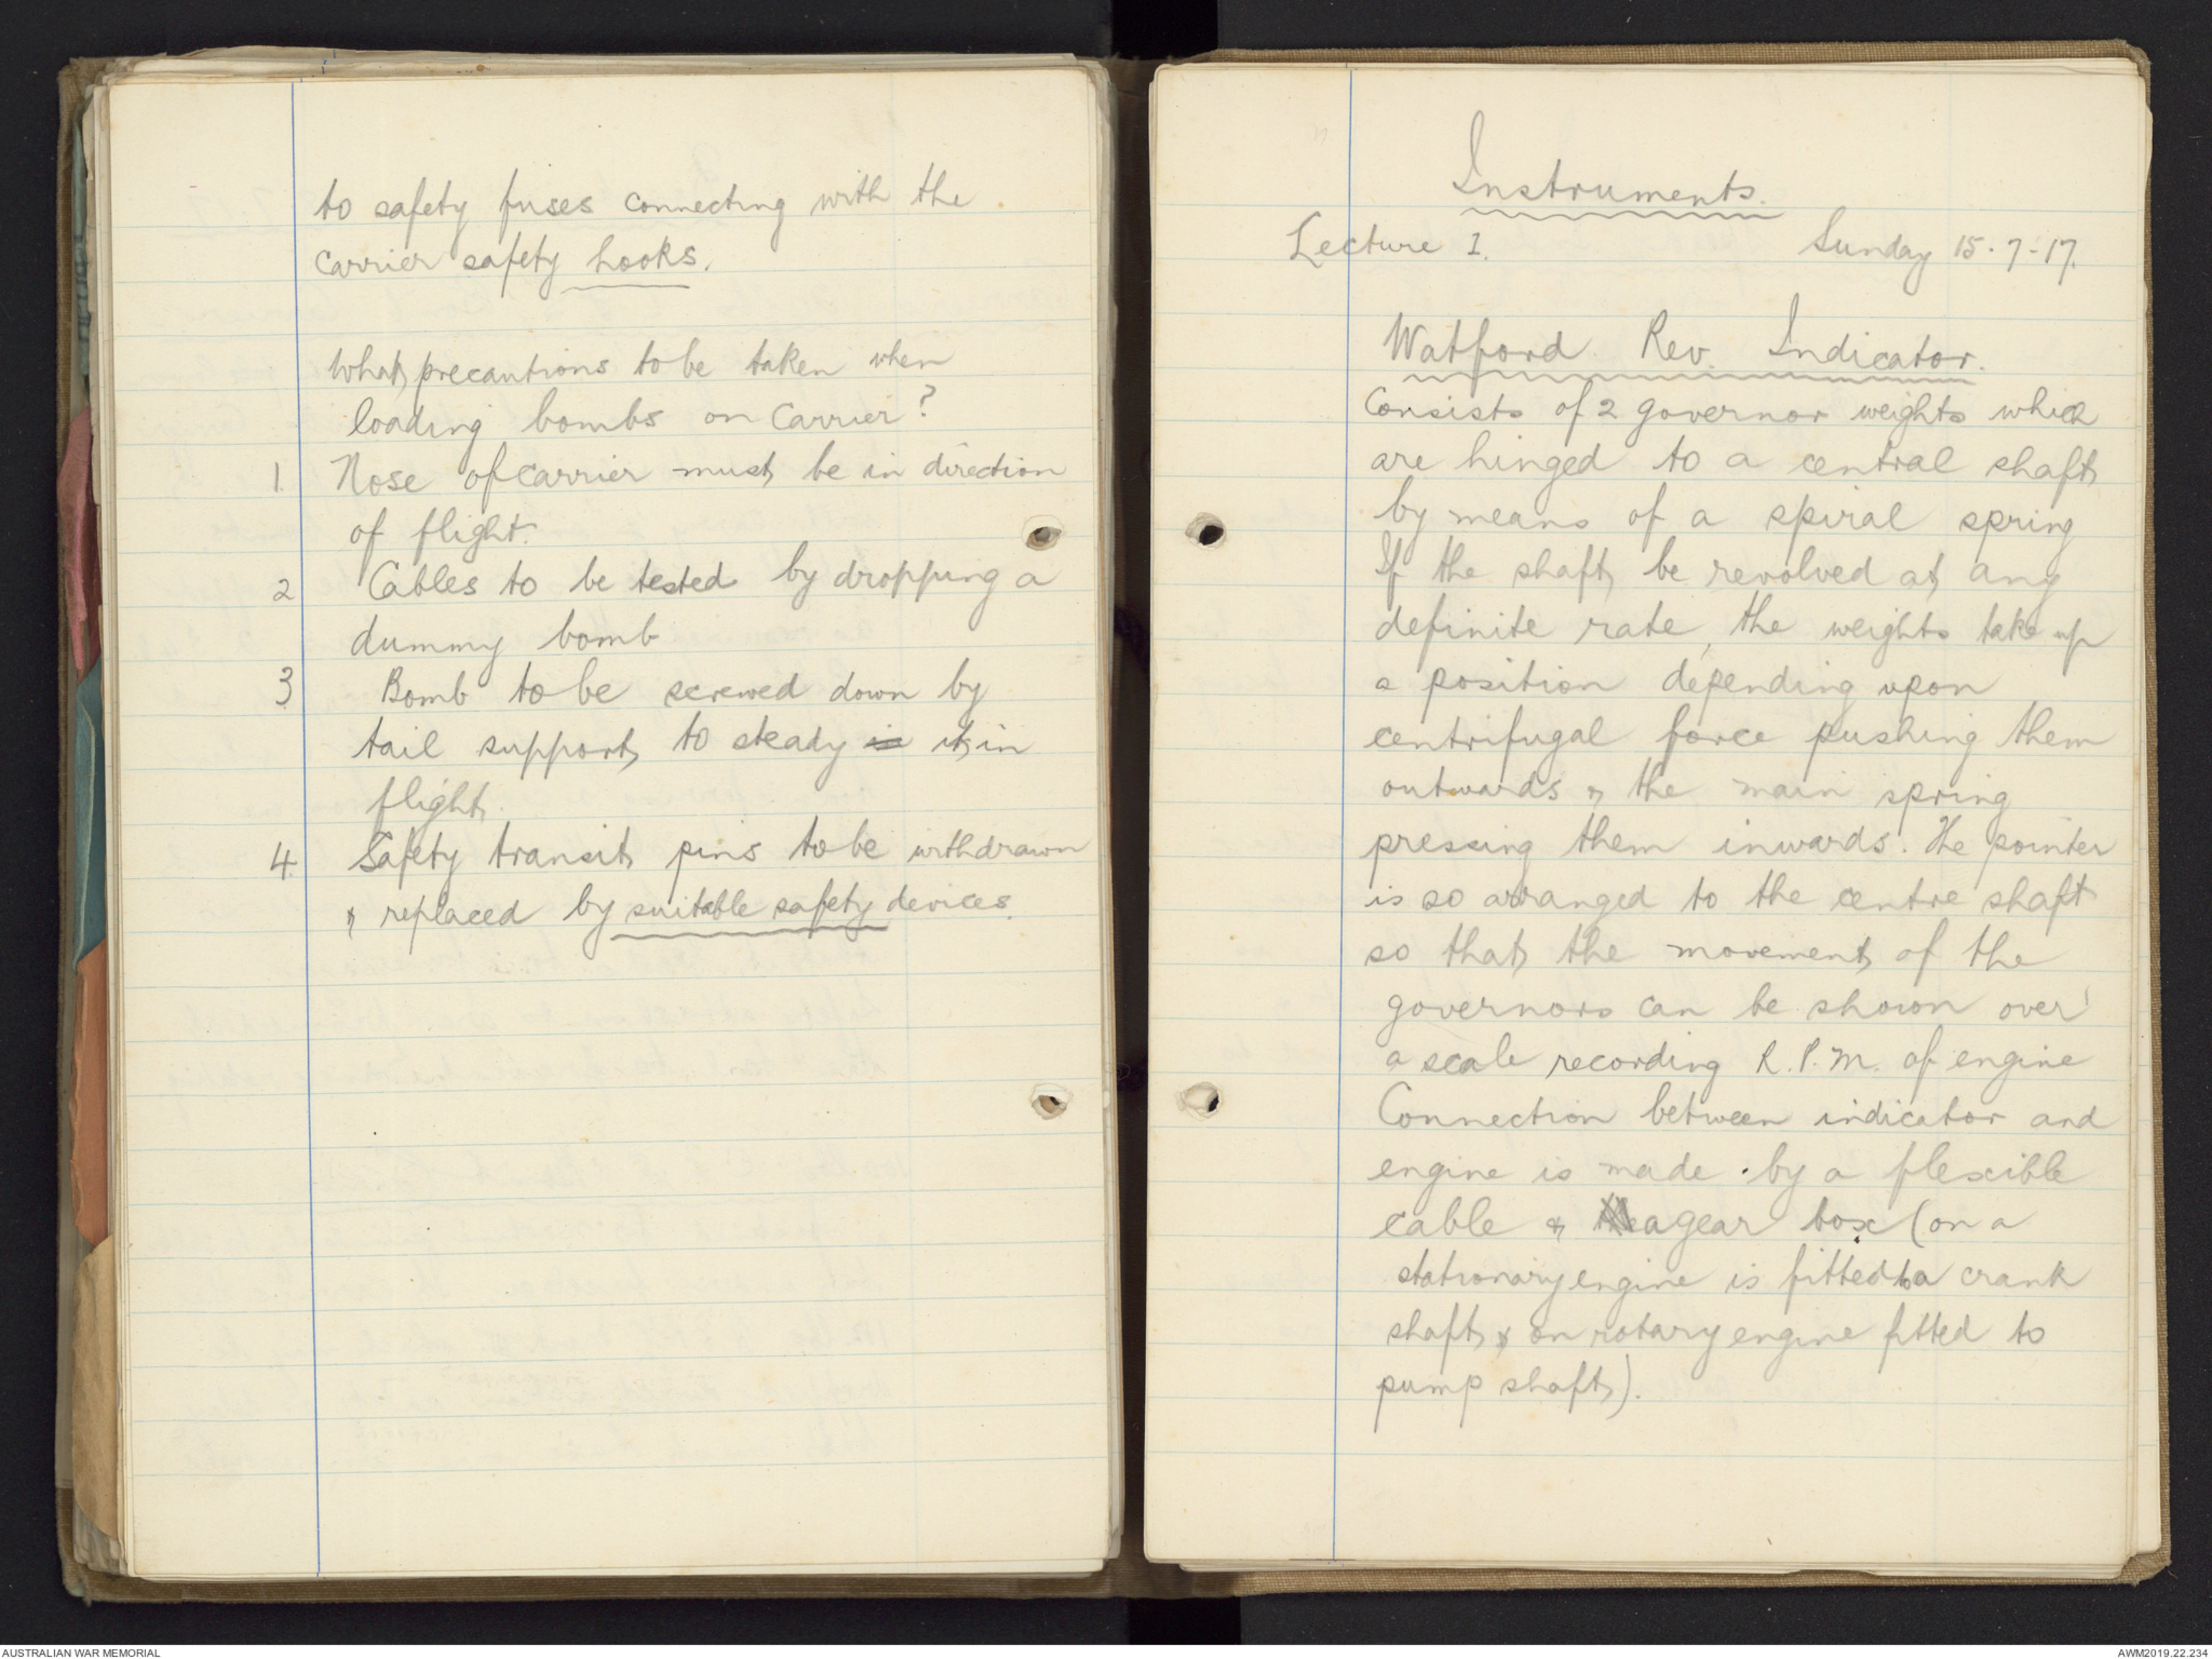 to safety fuses connecting with the
carrier safety hooks.
What precautions to be taken when
loading bombs on Carrier?
1. Nose of carrier must be in direction
of flight.
2 Cables to be tested by dropping a
dummy bomb
3 Bomb to be screwed down by
tail support to steady is it in
flight.
4. Safety transit pins to be withdrawn
& replaced by suitable safety devices.
Instruments.
Lecture 1. Sunday 15.7-17.
Watford Rev. Indicator.
Consists of 2 governor weights which
are hinged to a central shaft
by means of a spiral spring
If the shaft be revolved at any
definite rate, the weights take up
a position depending upon
centrifugal force pushing them
outwards & the main spring
pressing them inwards. The pointer
is so arranged to the centre shaft
so that the movement of the
governors can be shown over
a scale recording R.P.M. of engine
Connection between indicator and
engine is made by a flexible
cable & the a gear box (on a
stationary engine is fitted to a crank
shaft & on rotary engine fitted to
pump shaft).
AUSTRALIAN WAR MEMORIAL
AWM2019.22.234